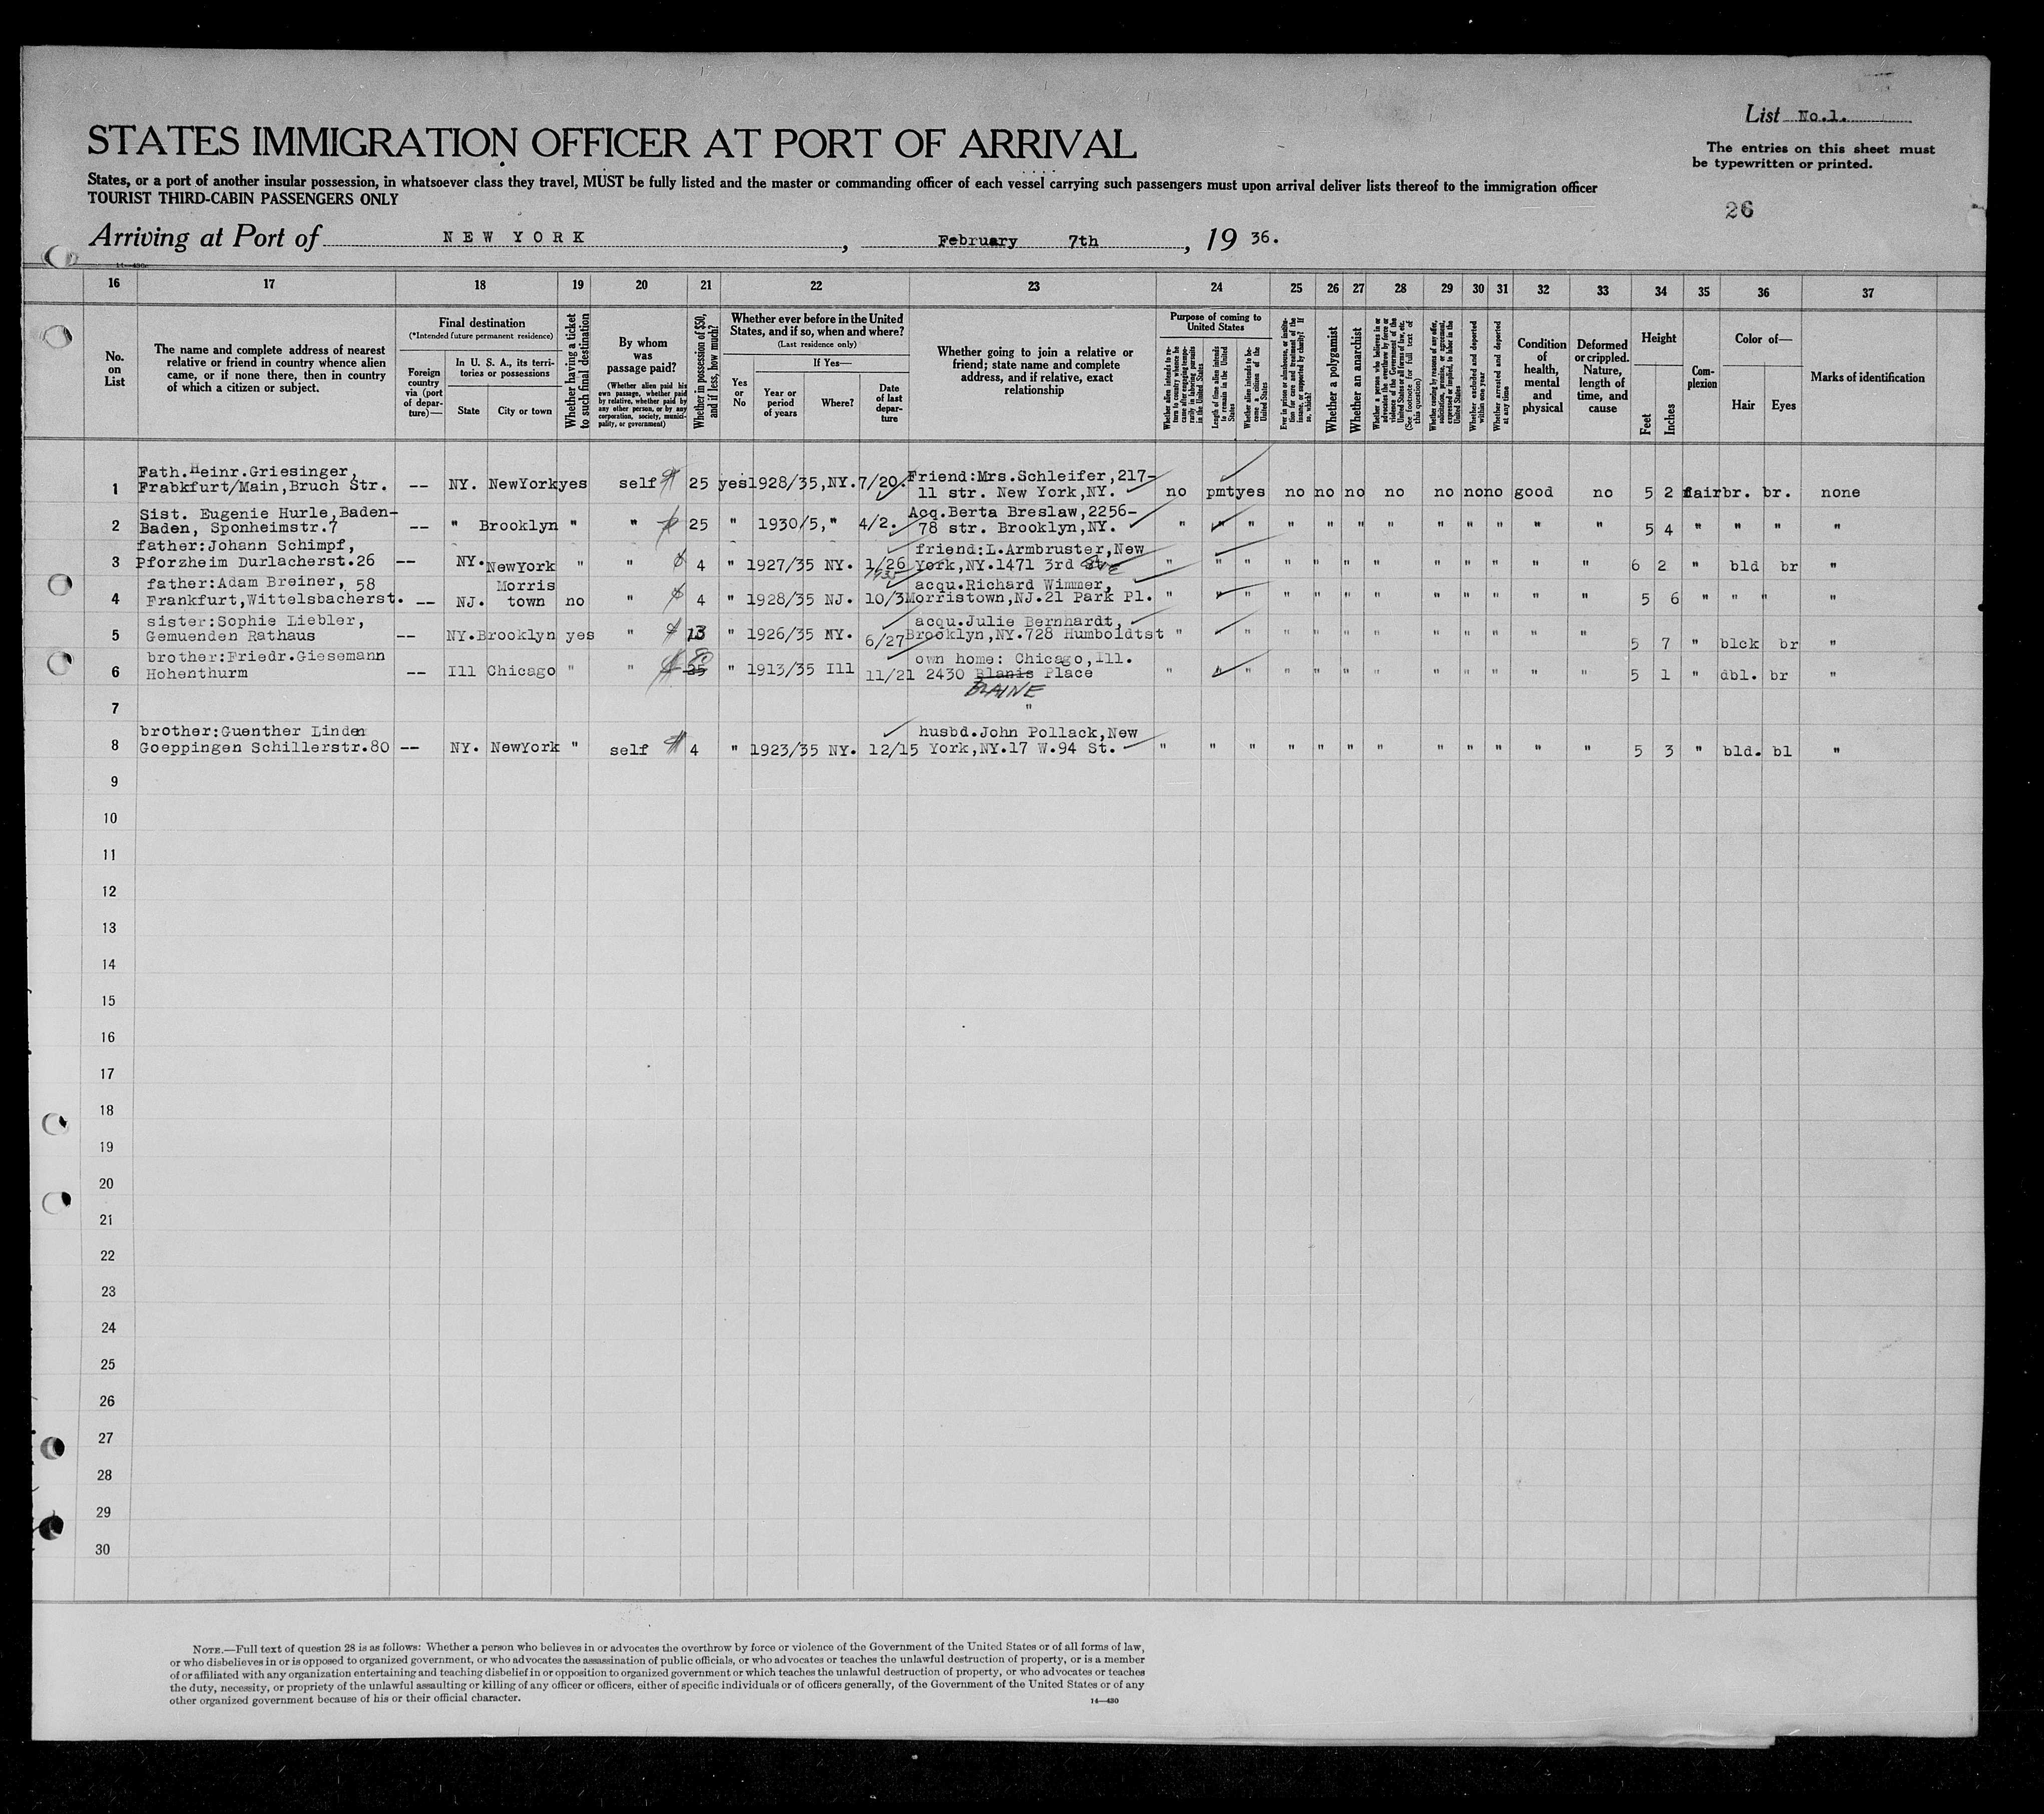 List No.1.
STATES IMMIGRATION OFFICER AT PORT OF ARRIVAL
The entries on this sheet must
be typewritten or printed.
States, or a port of another insular possession, in whatsoever class they travel, MUST be fully listed and the master or commanding officer of each vessel carrying such passengers must upon arrival deliver lists thereof to the immigration officer
TOURIST THIRD-CABIN PASSENGERS ONLY
26
Arriving at Port of NEW YORK, February 7th, 19 36.
14—430
16 17 18 19 20 21 22 23 24 25 26 27 28 29 30 31 32 33 34 35 36 37
No.
on
List
The name and complete address of nearest
relative or friend in country whence alien
came, or if none there, then in country
of which a citizen or subject.
Final destination
(*Intended future permanent residence)
Foreign
country
via (port
of depar-
ture)—
In U. S. A., its terri-
tories or possessions
State
City or town
Whether having a ticket
to such final destination
By whom
was
passage paid?
(Whether alien paid his
own passage, whether paid
by relative, whether paid by
any other person, or by any
corporation, society, munici-
pality, or government)
Whether in possession of $50,
and if less, how much?
Whether ever before in the United
States, and if so, when and where?
(Last residence only)
Yes
or
No
If Yes—
Year or
period
of years
Where?
Date
of last
depar-
ture
Whether going to join a relative or
friend; state name and complete
address, and if relative, exact
relationship
Purpose of coming to
United States
Whether alien intends to re-
turn to country whence he
came after engaging tempo-
rarily in laboring pursuits
in the United States
Length of time alien intends
to remain in the United
States
Whether alien intends to be-
come a citizen of the
United States
Ever in prison or almshouse, or institu-
tion for care and treatment of the
insane, or supported by charity? If
so, which?
Whether a polygamist
Whether an anarchist
Whether a person who believes in or
advocates the overthrow by force or
violence of the Government of the
United States or all forms of law, etc.
(See footnote for full text of
this question)
Whether coming by reasons of any offer,
solicitation, promise, or agreement,
expressed or implied, to labor in the
United States
Whether excluded and deported
within one year
Whether arrested and deported
at any time
Condition
of
health,
mental
and
physical
Deformed
or crippled.
Nature,
length of
time, and
cause
Height
Feet
Inches
Com-
plexion
Color of—
Hair
Eyes
Marks of identification
Fath.Heinr.Griesinger, Friend:Mrs.Schleifer,217-
1 Frabkfurt/Main,Bruch Str. -- NY. NewYork yes self $ 25 yes 1928/35,NY. 7/20. 11 str. New York,NY. no pmt yes no no no no no no no good no 5 2 fair br. br. none
Sist. Eugenie Hurle,Baden- Acq.Berta Breslaw,2256-
2 Baden, Sponheimstr.7 -- " Brooklyn " " $ 25 " 1930/5," 4/2. 78 str. Brooklyn,NY. " " " " " " " " " " " " 5 4 " " " "
father:Johann Schimpf, friend:L.Armbruster,New
3 Pforzheim Durlacherst.26 -- NY. NewYork " " $ 4 " 1927/35 NY. 1/26 1935 York,NY.1471 3rd Ave " " " " " " " " " " " " 6 2 " bld br "
father:Adam Breiner, 58 Morris acqu.Richard Wimmer,
4 Frankfurt,Wittelsbacherst. -- NJ. town no " $ 4 " 1928/35 NJ. 10/3 Morristown,NJ.21 Park Pl. " " " " " " " " " " " " 5 6 " " " "
sister:Sophie Liebler, acqu.Julie Bernhardt,
5 Gemuenden Rathaus -- NY. Brooklyn yes " $ 13 " 1926/35 NY. 6/27 Brooklyn,NY.728 Humboldtst " " " " " " " " " " " " 5 7 " blck br "
brother:Friedr.Giesemann own home: Chicago,Ill.
6 Hohenthurm -- Ill Chicago " " $ 80 25 " 1913/35 Ill 11/21 2430 Blanis Place " " " " " " " " " " " " 5 1 " dbl. br "
BLAINE
7 "
brother:Guenther Linden husbd.John Pollack,New
8 Goeppingen Schillerstr.80 -- NY. NewYork " self $ 4 " 1923/35 NY. 12/15 York,NY.17 W.94 St. " " " " " " " " " " " " 5 3 " bld. bl "
9
10
11
12
13
14
15
16
17
18
19
20
21
22
23
24
25
26
27
28
29
30
NOTE.—Full text of question 28 is as follows: Whether a person who believes in or advocates the overthrow by force or violence of the Government of the United States or of all forms of law,
or who disbelieves in or is opposed to organized government, or who advocates the assassination of public officials, or who advocates or teaches the unlawful destruction of property, or is a member
of or affiliated with any organization entertaining and teaching disbelief in or opposition to organized government or which teaches the unlawful destruction of property, or who advocates or teaches
the duty, necessity, or propriety of the unlawful assaulting or killing of any officer or officers, either of specific individuals or of officers generally, of the Government of the United States or of any
other organized government because of his or their official character.
14—430